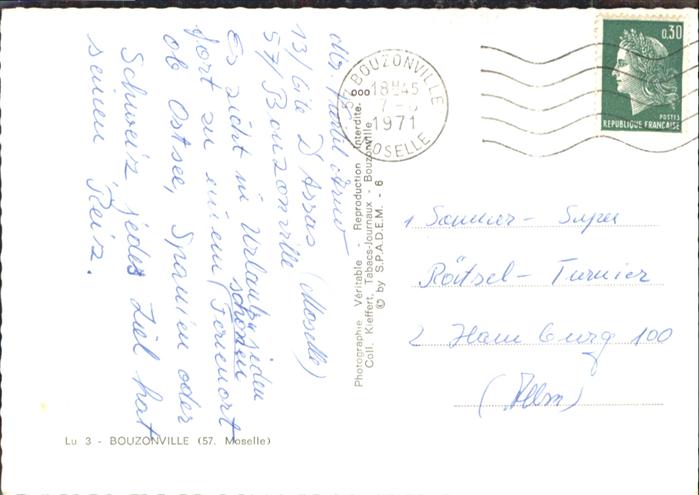 Arno
13/Cité D'Assas
57/Bouzonville (Moselle)
Es zieht in Urlaub jeden
fort zu einem schönen Ferienort
ob Ostsee, Spanien oder
Schweiz, jedes Ziel hat
seinen Reiz.
57 BOUZONVILLE
18H45
1971
MOSELLE
0,30
POSTES
REPUBLIQUE FRANÇAISE
Photographie Véritable - Reproduction Interdite.
Coll. Kieffert, Tabacs-Journaux - Bouzonville
© by S.P.A.D.E.M. - 6
1 Sommer- Super
Rätsel- Turnier
2 Hamburg 100
Lu 3 - BOUZONVILLE (57. Moselle)